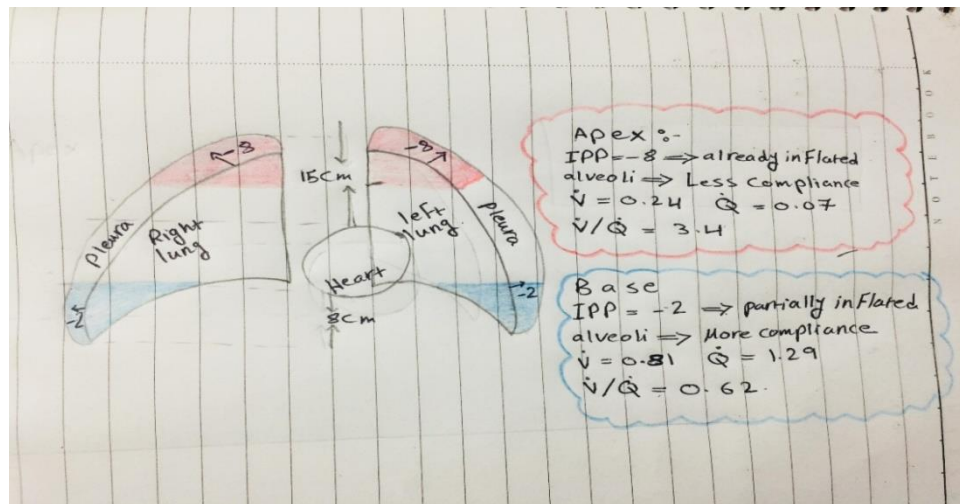 -8
-8
15cm
pleura
Right
lung
left
lung
pleura
Heart
-2
-2
8cm
Apex :-
IPP = -8 ⇒ already inflated
alveoli ⇒ Less compliance
V̇ = 0.24 Q̇ = 0.07
V̇/Q̇ = 3.4
Base
IPP = -2 ⇒ partially inflated
alveoli ⇒ More compliance
V̇ = 0.81 Q̇ = 1.29
V̇/Q̇ = 0.62.